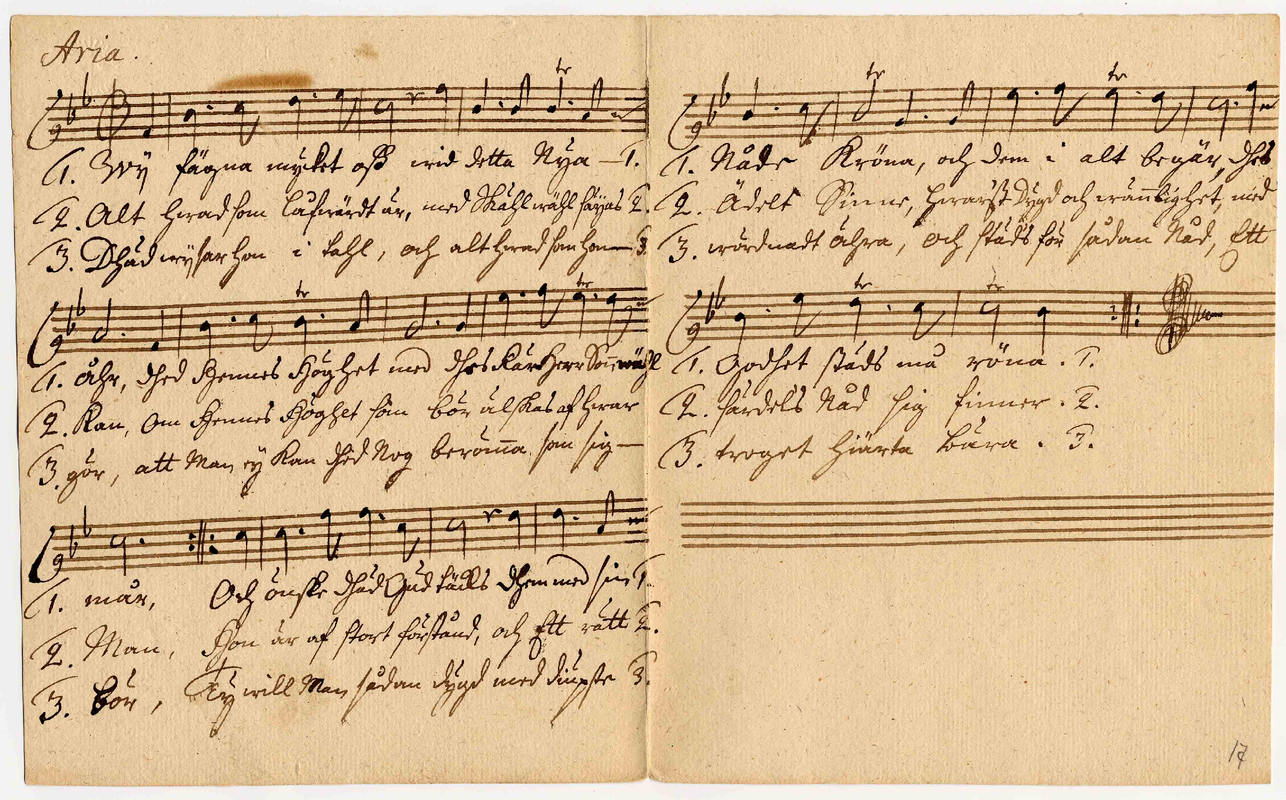 Aria.
1. Wÿ fägna mycket oß wid detta Nya — 1.
2. Alt hwad som låfwärdt är, med Skähl wähl säyas 2.
3. Dhäd wysar hon i tahl, och alt hwad som hon — 3.
1. åhr, dhed Hennes Höghet med dhes Kär Herr Son wähl
2. Kan, Om Hennes Höghet som bör älskas af hwar
3. gör, att Man ey Kan dhed Nog berömma, som sig —
1. mår, Och önske dhäd Gud täcks dhem med sin 1.
2. Man, Hon är af stort förstånd, och Ett rätt 2.
3. bör, Ty will Man sådan dygd med diupste 3.
1. Nåde Kröna, och dem i alt begär, dhes
2. Ädelt Sinne, hwarest Dygd och wänlighet, med
3. wördnadt ähra, och städs för sådan Nåd, Ett
1. Godhet städs må röna. 1.
2. särdels Nåd sig finner. 2.
3. troget hiärta bära. 3.
17